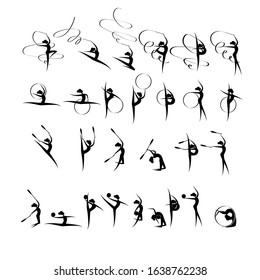 shutterstock.com · 1638762238